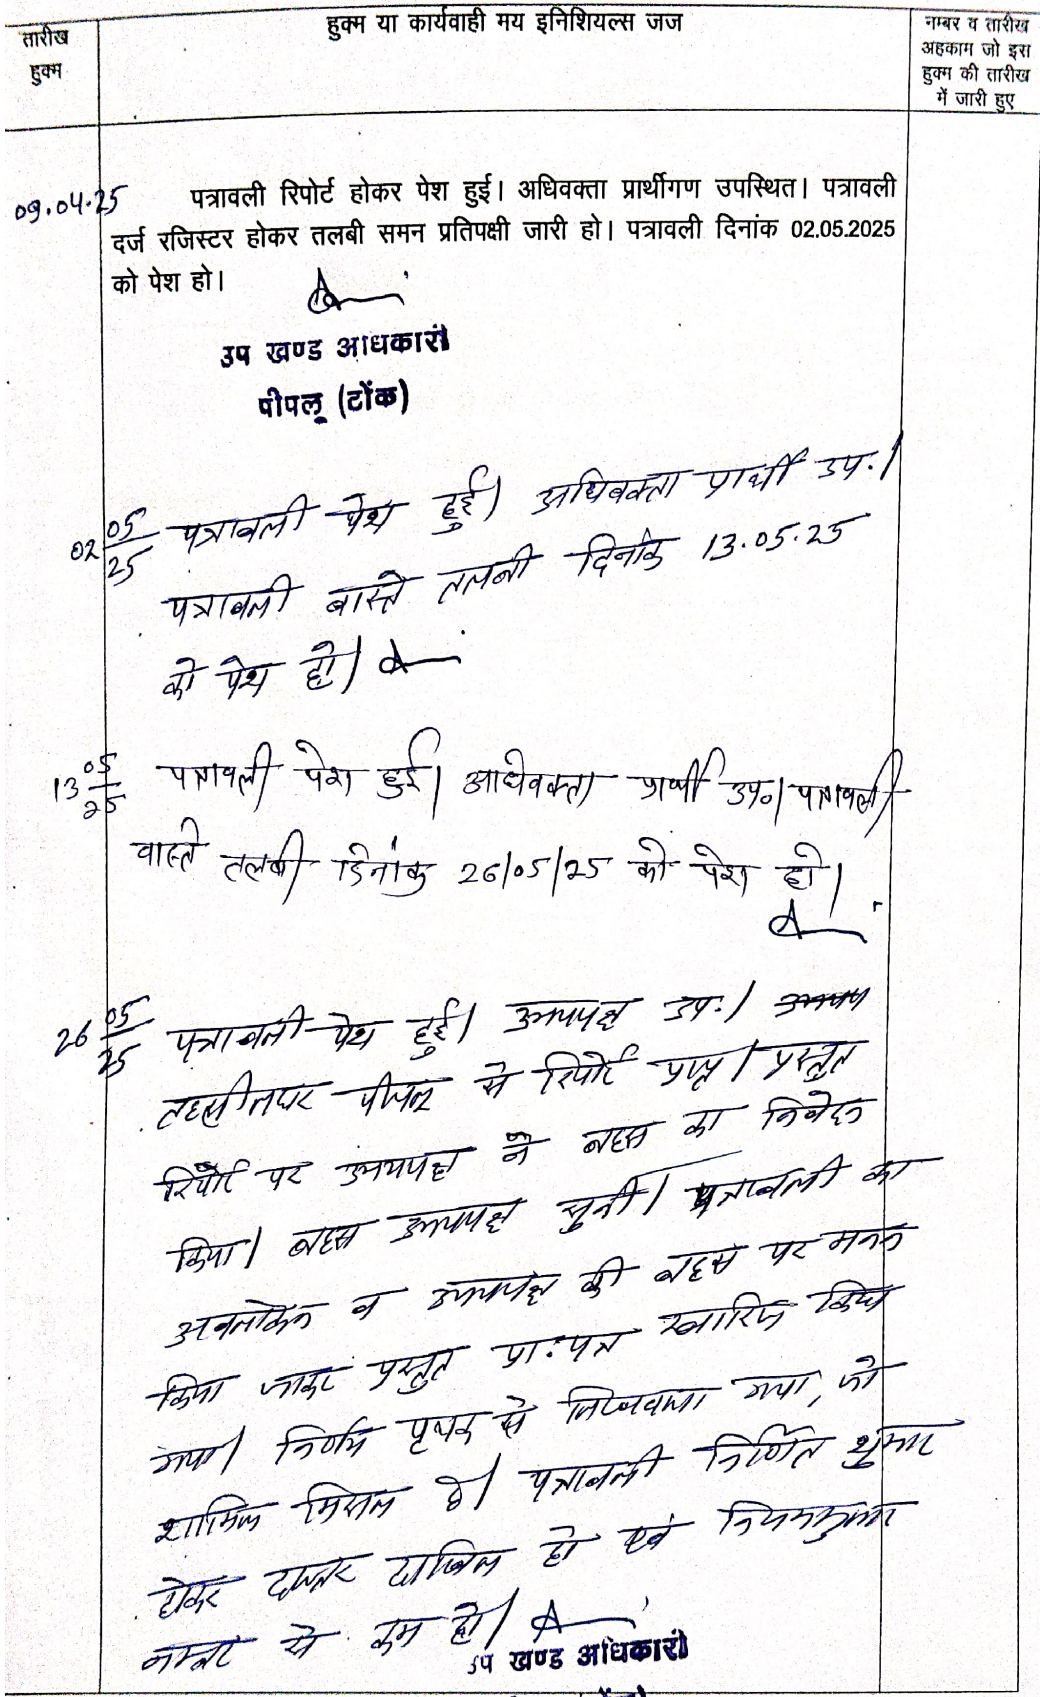 तारीख
हुक्म
हुक्म या कार्यवाही मय इनिशियल्स जज
नम्बर व तारीख
अहकाम जो इस
हुक्म की तारीख
में जारी हुए
09.04.25
पत्रावली रिपोर्ट होकर पेश हुई। अधिवक्ता प्रार्थीगण उपस्थित। पत्रावली
दर्ज रजिस्टर होकर तलबी समन प्रतिपक्षी जारी हो। पत्रावली दिनांक 02.05.2025
को पेश हो।
उप खण्ड अधिकारी
पीपलू (टोंक)
02 05/25 पत्रावली पेश हुई। अधिवक्ता प्रार्थी उप.।
पत्रावली वास्ते तलबी दिनांक 13.05.25
को पेश हो।
13 05/25 पत्रावली पेश हुई। अधिवक्ता प्रार्थी उप०। पत्रावली
वास्ते तलबी दिनांक 26/05/25 को पेश हो।
26 05/25 पत्रावली पेश हुई। उभयपक्ष उप.।
तहसीलदार पीपलू से रिपोर्ट प्राप्त। प्रस्तुत
रिपोर्ट पर उभयपक्ष ने बहस का निवेदन
किया। बहस उभयपक्ष सुनी। पत्रावली का
अवलोकन व उभयपक्ष की बहस पर मनन
किया जाकर प्रस्तुत प्रा.पत्र खारिज किया
गया। निर्णय पृथक से लिखवाया गया, जो
शामिल मिसल है। पत्रावली निर्णित शुमार
होकर दफ्तर दाखिल हो एवं नियमानुसार
नम्बर से कम हो।
उप खण्ड अधिकारी